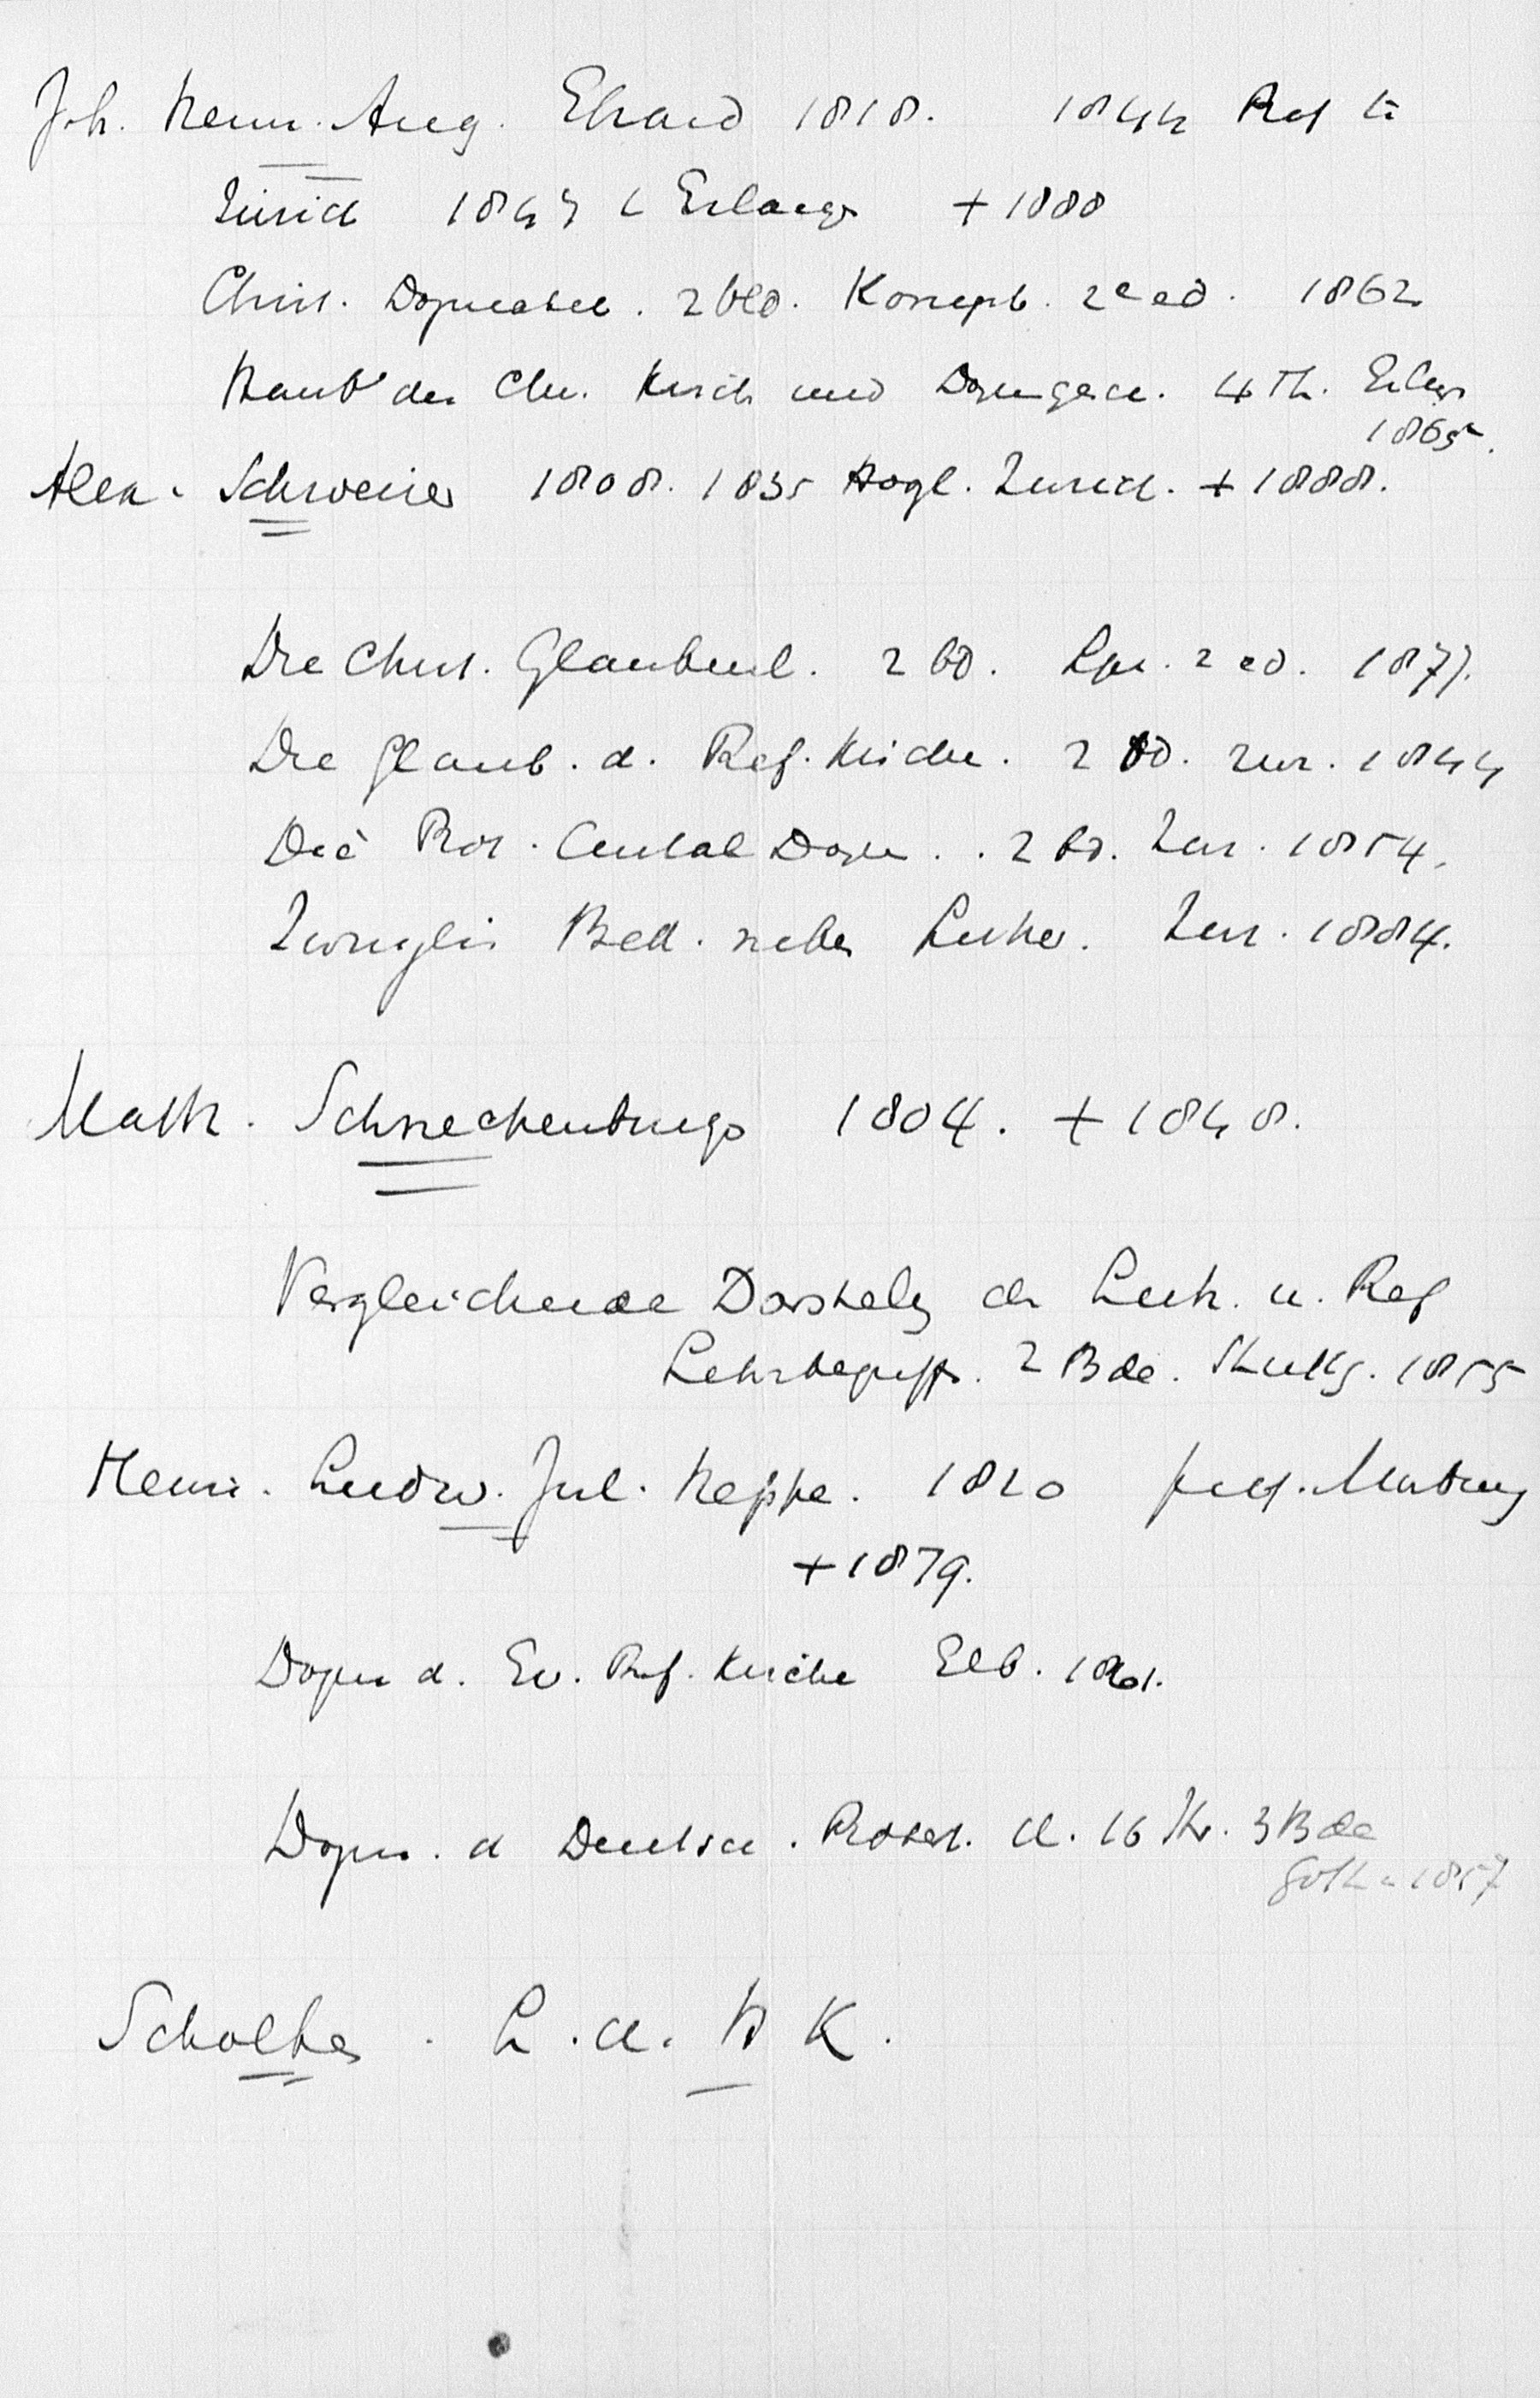 Joh. Heinr. Aug. Ebrard 1818. 1844 Prof te
Zürich 1847 t Erlangen + 1888
Christ. Dogmatik. 2 bde. Konigsb. 2e ed. 1862
Handb der Chr. Kirch und Dogmgesch. 4 Th. Erlang
1865.
Alex. Schweizer 1808. 1835 Hogl. Zurich. + 1888.
Die Christ. Glaubensl. 2 bd. Lpz. 2 ed. 1877.
Die Glaub. d. Ref. Kirche. 2 bd. Zur. 1844
Die Prot. Central Dogm. . 2 Bd. Zur. 1854.
Zwinglis Bed. neben Luther. Zur. 1884.
Matth. Schneckenburger 1804. + 1848.
Vergleichende Darstelg der Luth. u. Ref
Lehrbegriffs. 2 Bde. Stuttg. 1855
Heinr. Ludw. Jul. Heppe. 1820 Marburg
+ 1879.
Dogm d. Ev. Ref. Kirche Elb. 1861.
Dogm. d Deutsch. Protest. d. 16 Jhr. 3 Bde
Gotha 1857
Scholten. L. d. H K.